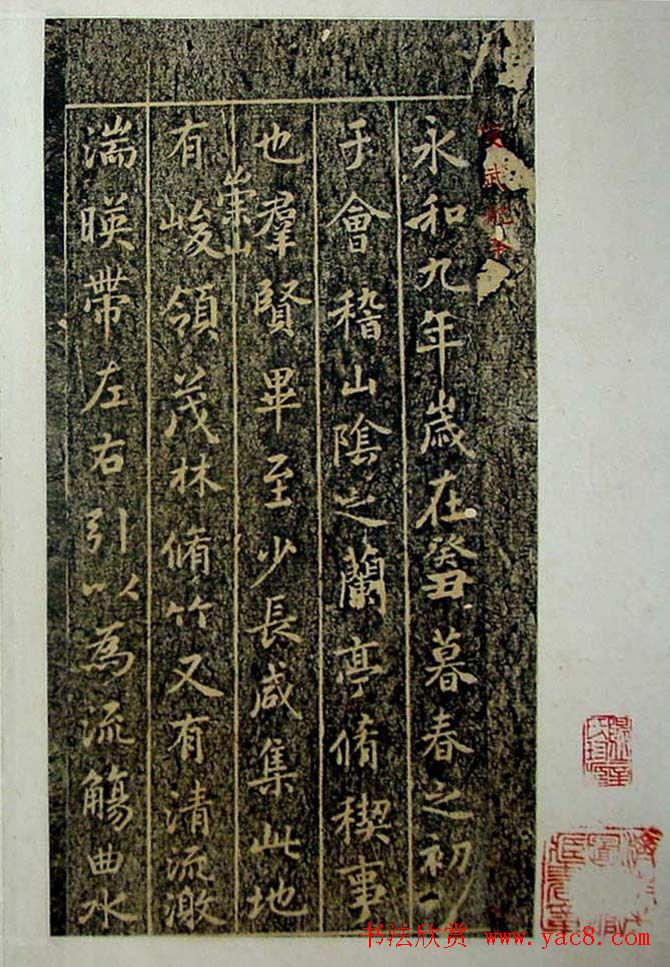 定武肥本
永和九年歲在癸丑暮春之初
于會稽山陰之蘭亭脩稧事
也羣賢畢至少長咸集此地
崇山
有峻領茂林脩竹又有清流激
湍暎帶左右引以為流觴曲水
书法欣赏 www.yac8.com